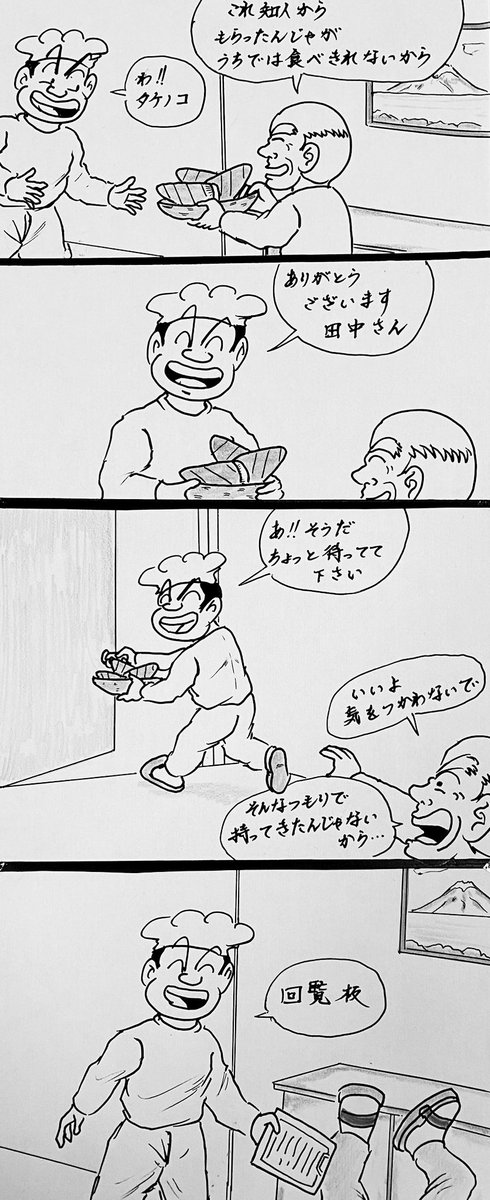 これ知人から
もらったんじゃが
うちでは食べきれないから
わ!!
タケノコ
ありがとう
ございます
田中さん
あ!!そうだ
ちょっと待ってて
下さい
いいよ
気をつかわないで
そんなつもりで
持ってきたんじゃない
から…
回覧板